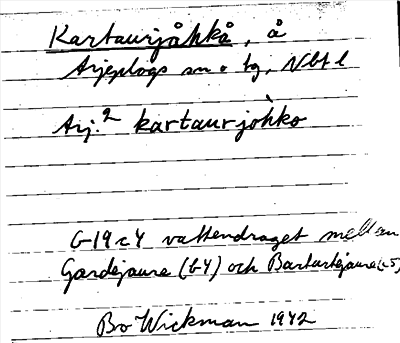 Kartaurjåhkå, å
Arjeplogs sn o tg, Nbt l
Arj.² kartaurjòhko
G-19 c 4 vattendraget mellan
Gardejaure (b4) och Bartartejaure (c5)
Bo Wickman 1942